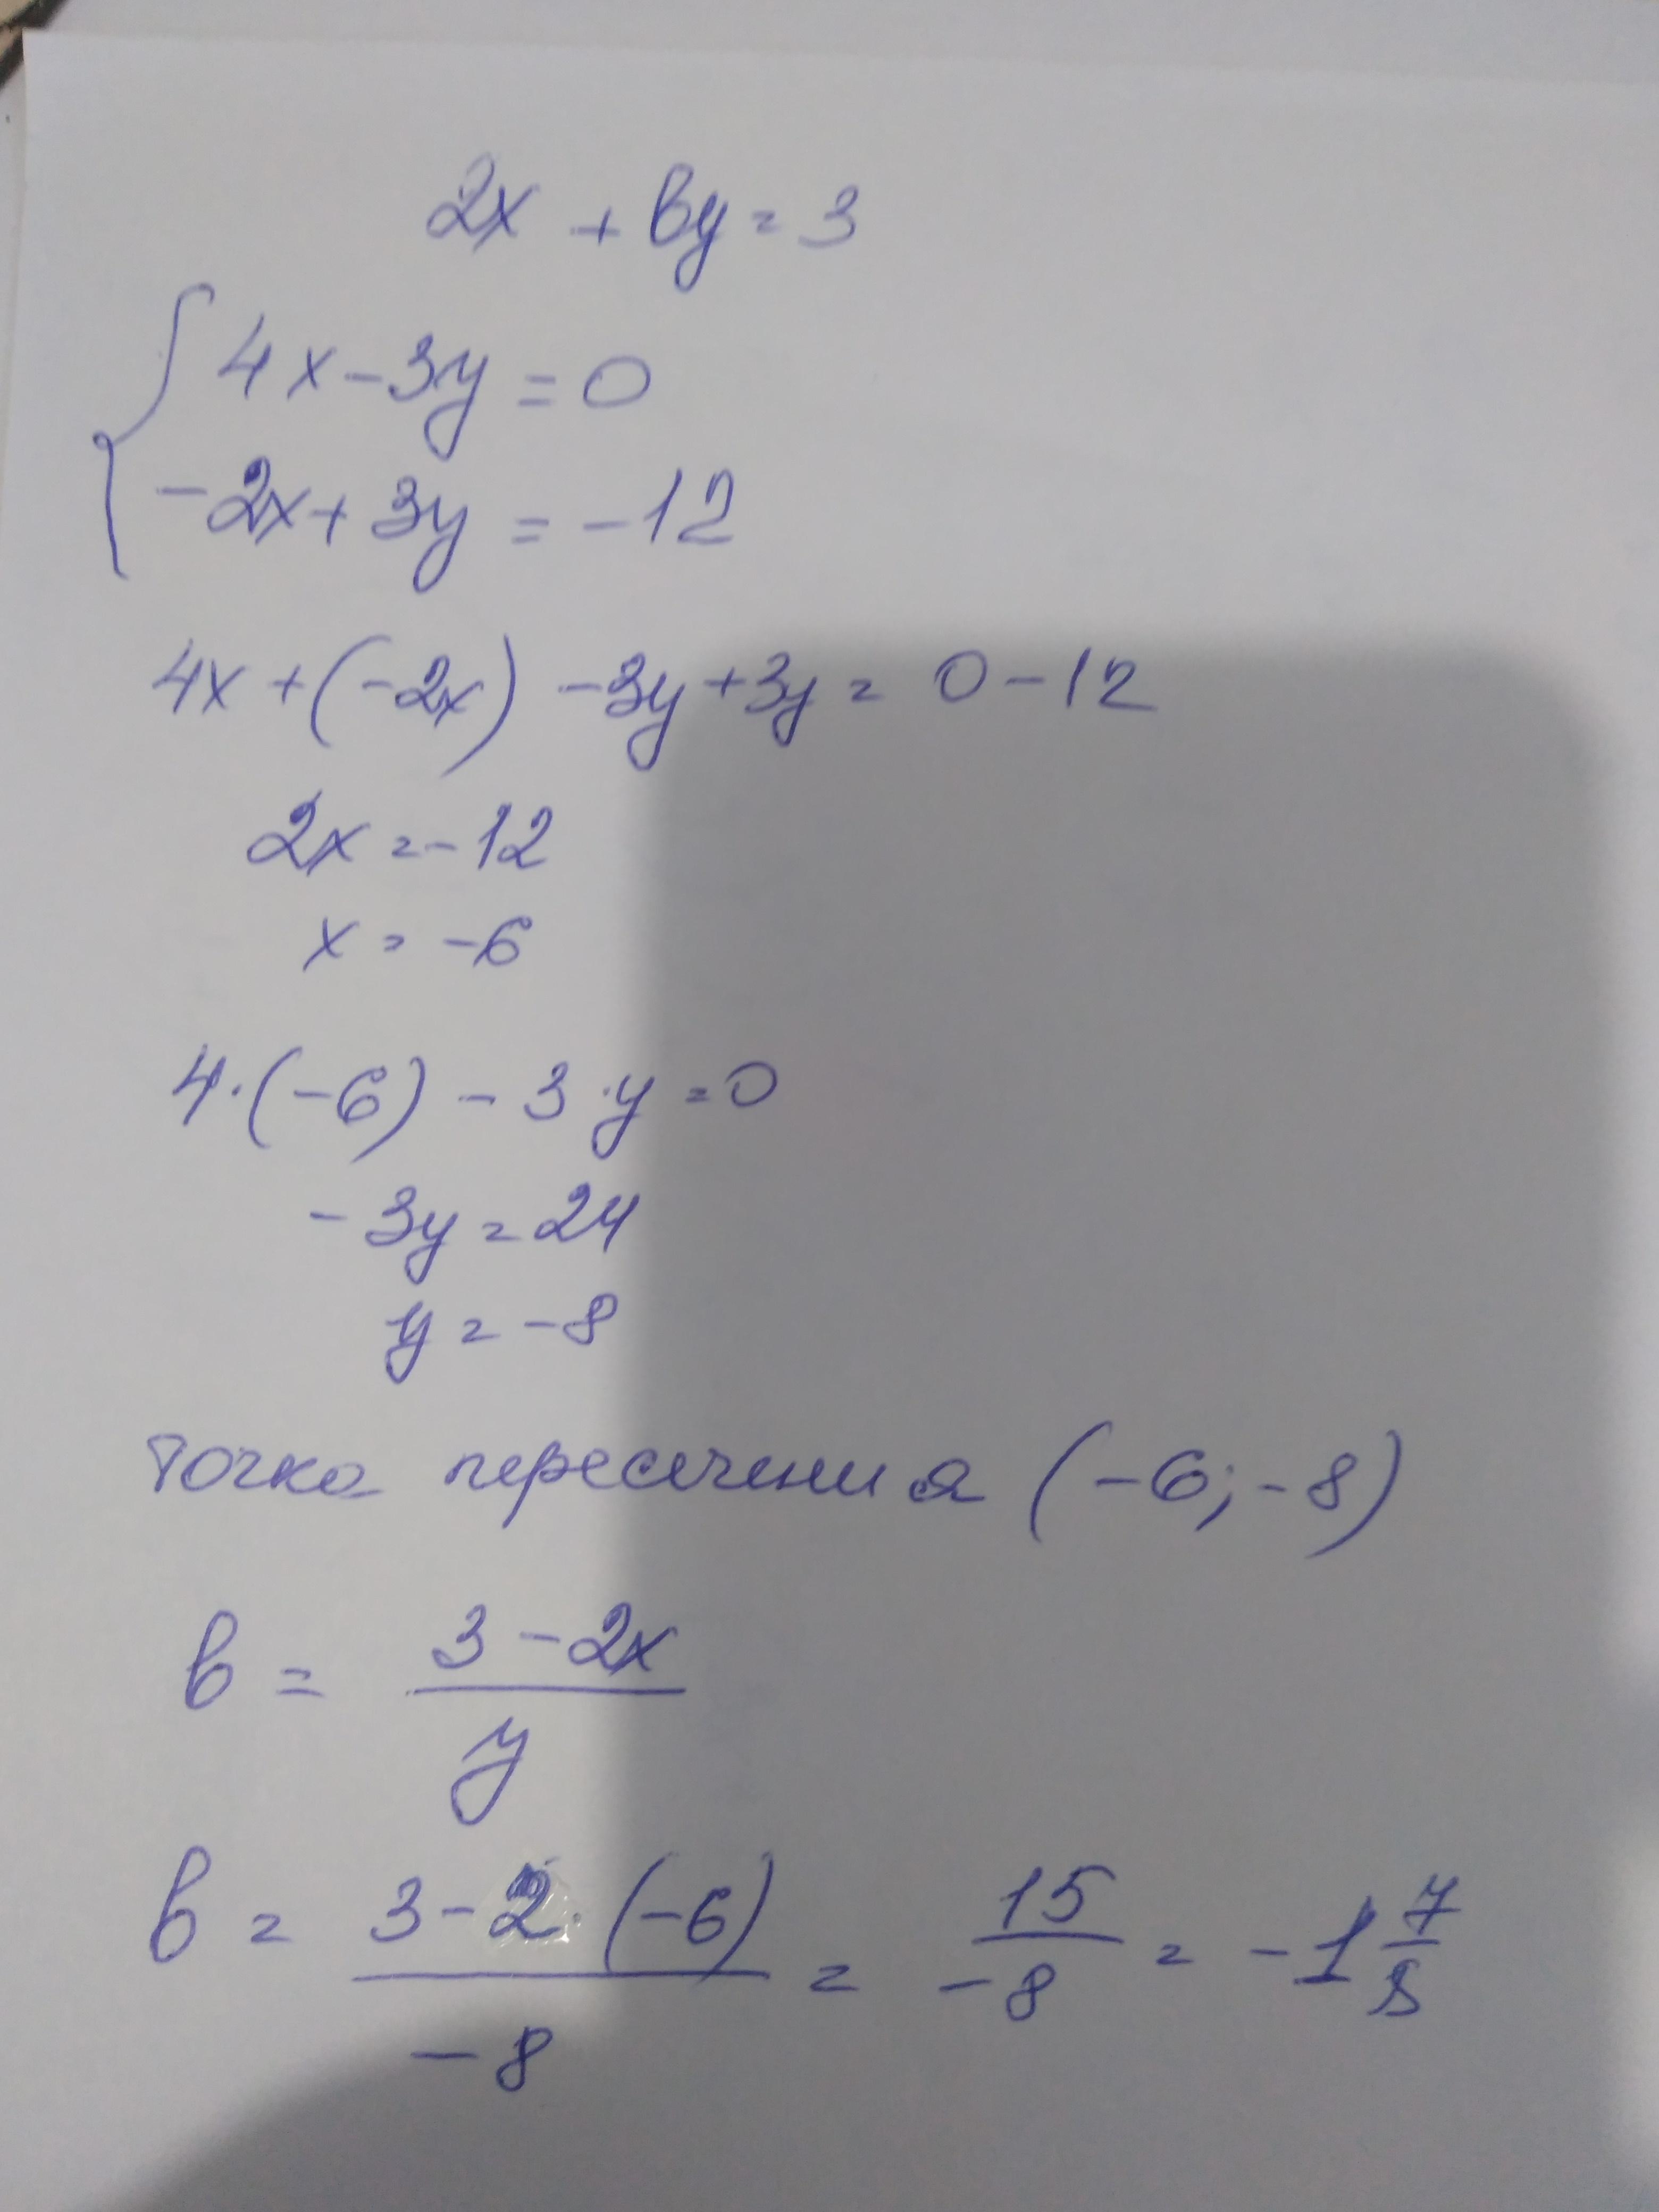 2x + by = 3
4x - 3y = 0
-2x + 3y = -12
4x + (-2x) - 3y + 3y = 0 - 12
2x = -12
x = -6
4·(-6) - 3·y = 0
-3y = 24
y = -8
Точка пересечения (-6; -8)
b = (3 - 2x)/y
b = (3 - 2·(-6))/(-8) = 15/(-8) = -1 7/8